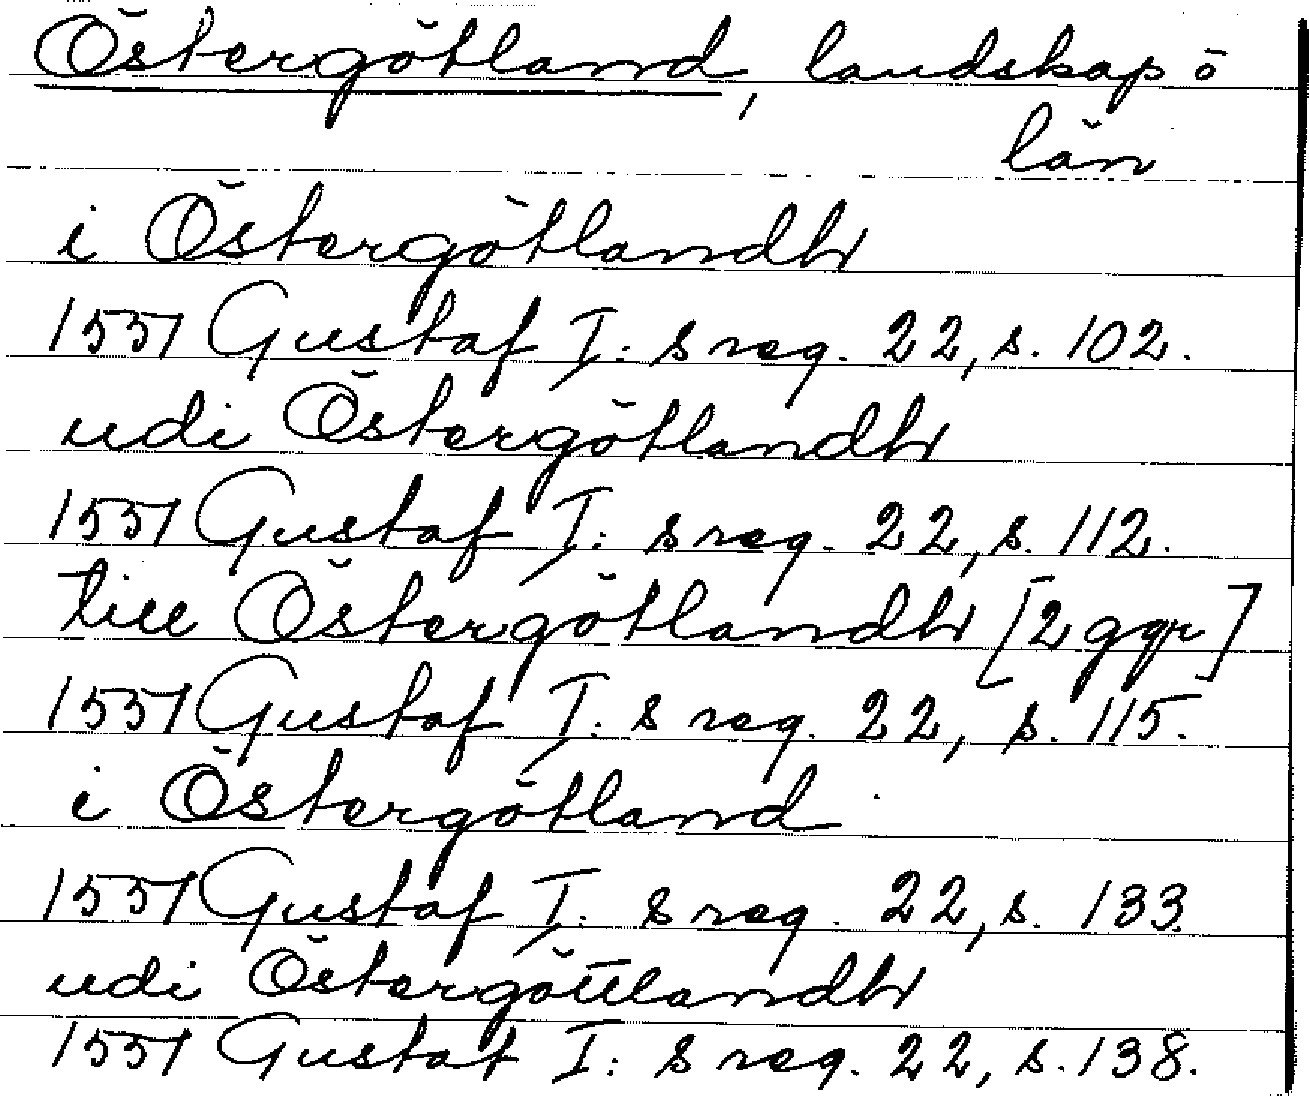 Östergötland, landskap o
län
i Östergötlandh
1551 Gustaf I:s reg. 22, s. 102.
udi Östergötlandh
1551 Gustaf I:s reg. 22, s. 112.
till Östergötlandh [2 ggr]
1551 Gustaf I:s reg. 22, s. 115.
i Östergötland
1551 Gustaf I:s reg. 22, s. 133.
udi Östergöttlandh
1551 Gustaf I:s reg. 22, s. 138.